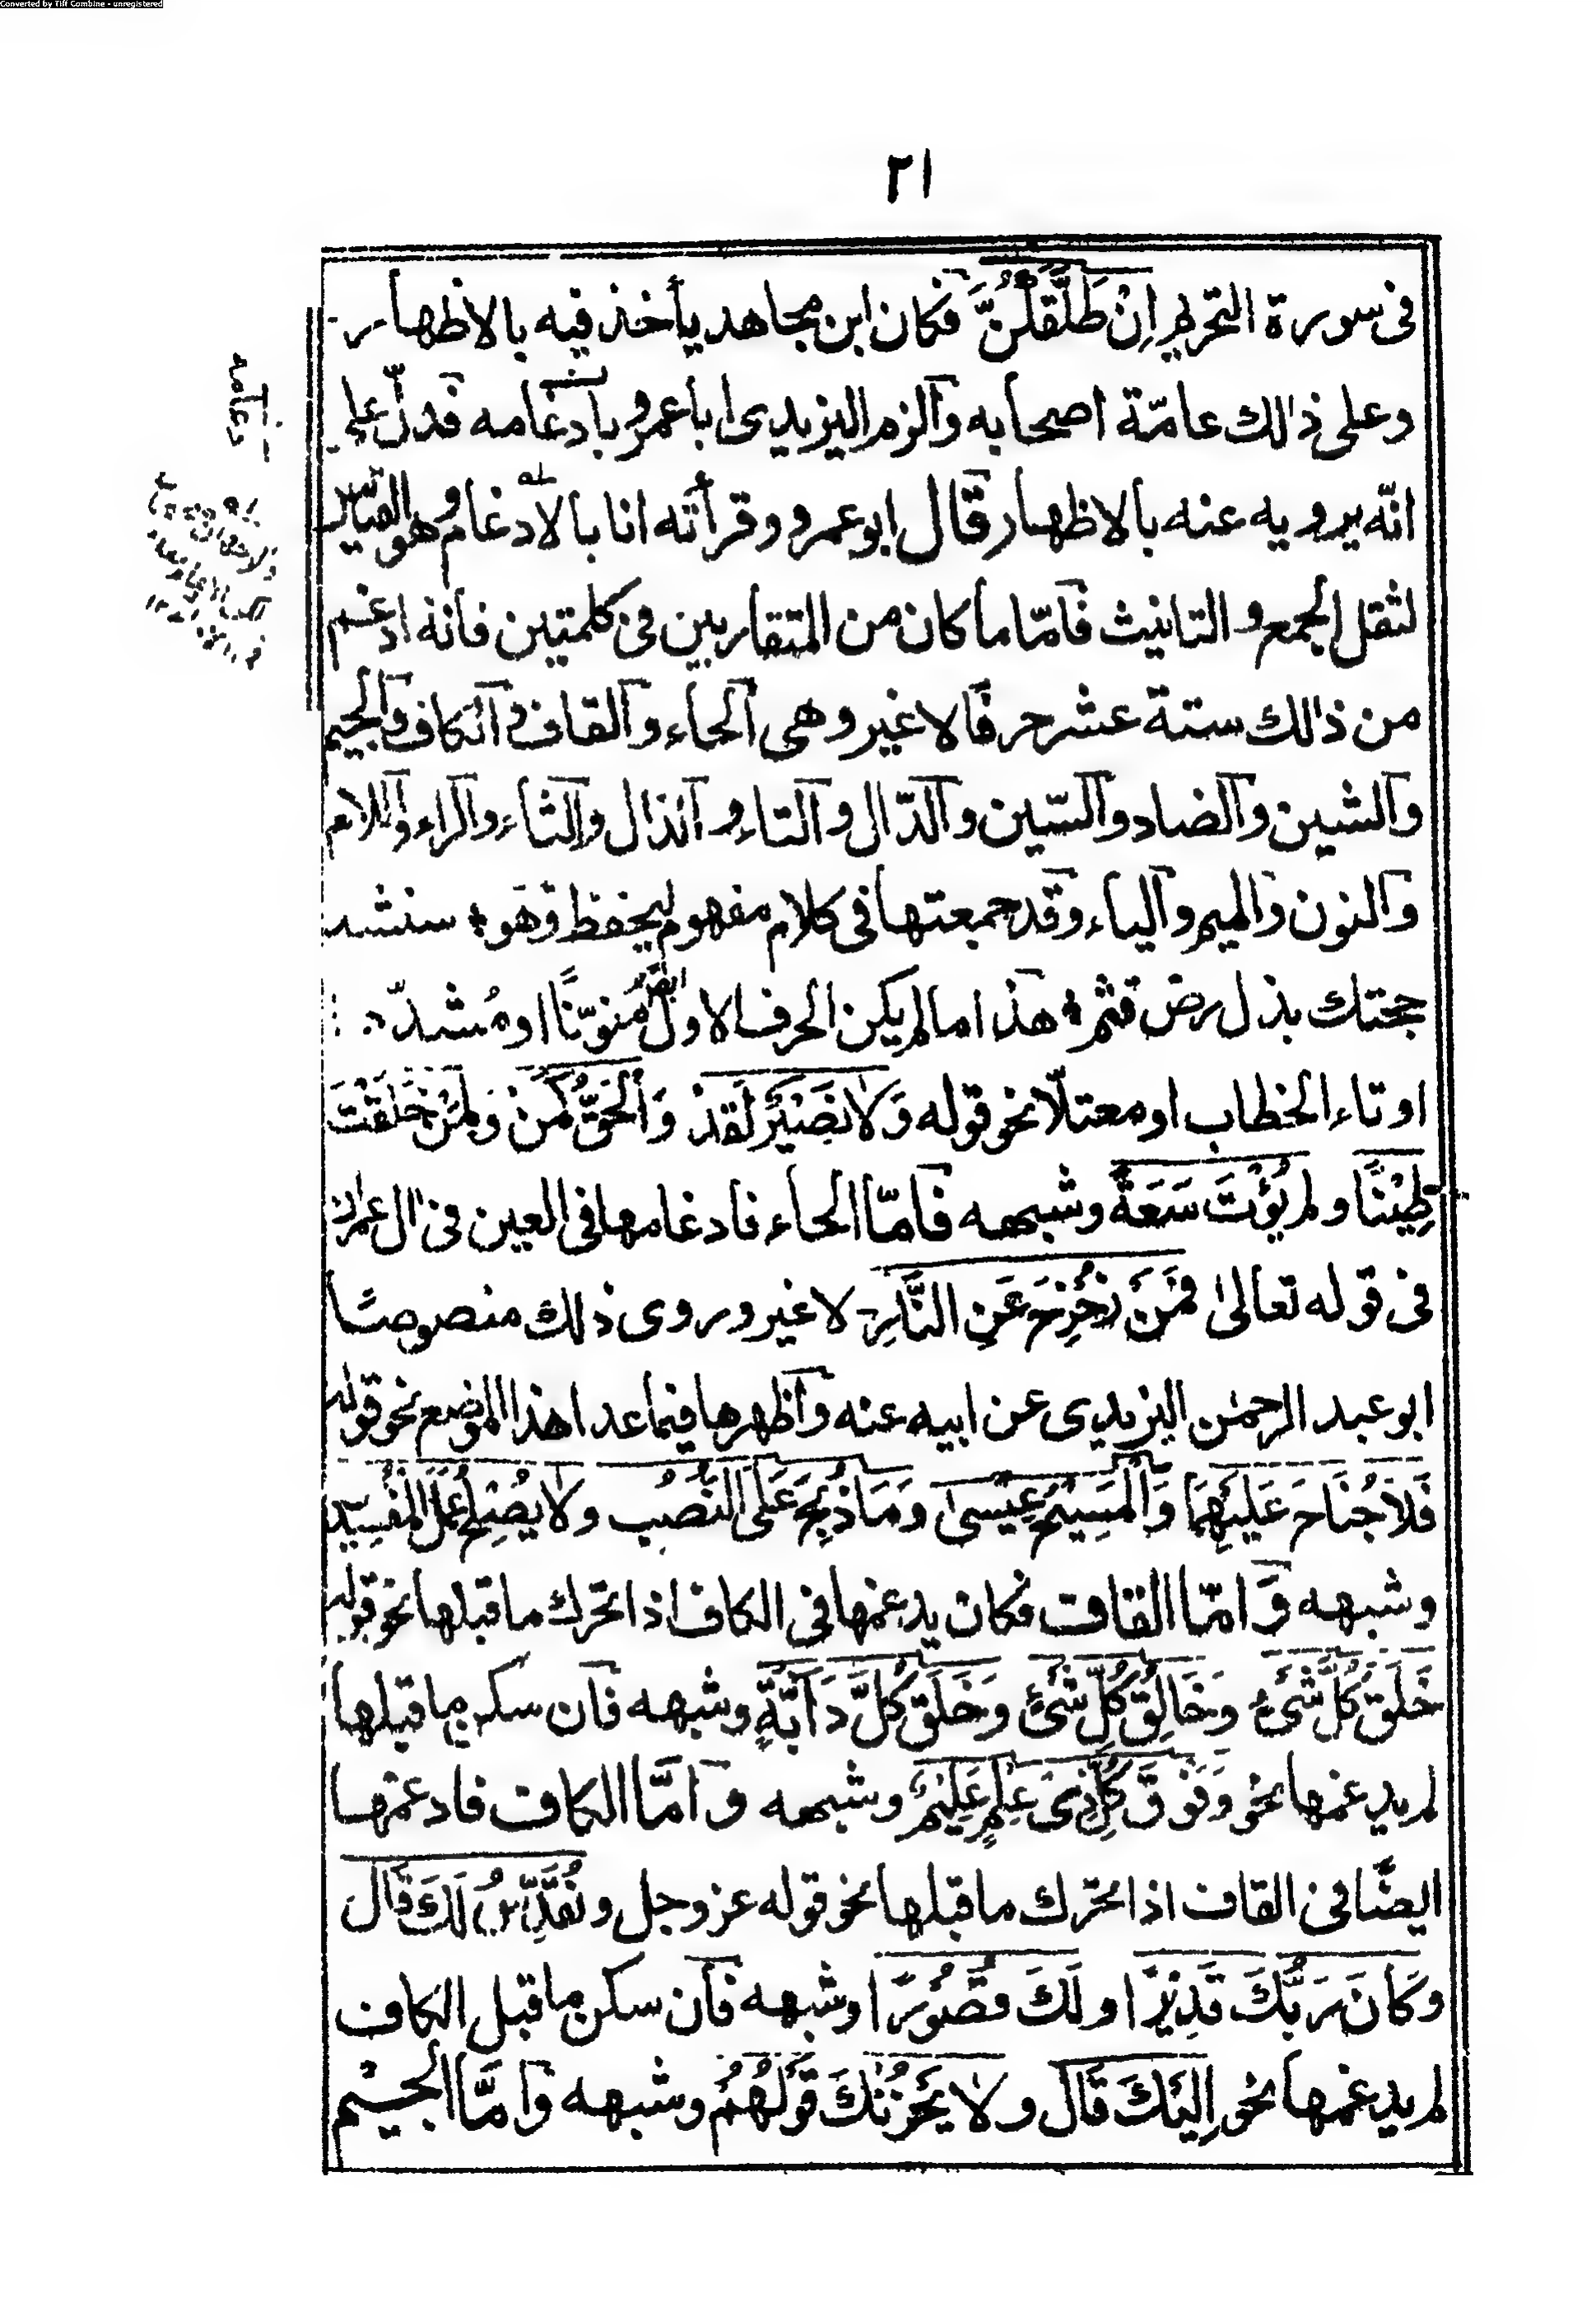 Converted by Tiff Combine - unregistered
٢١
فى سورة التحريم اِنْ طَلَّقَكُنَّ فكان ابن مجاهد يأخذ فيه بالاظهار
وعلى ذالك عامّة اصحابه وآلزم اليزيدى ابا عمرو بادغامه فدلّ على
انّه يرويه عنه بالاظهار قال ابو عمرو وقرأته انا بالادغام وهو القياس
لثقل الجمع و التانيث فامّا ما كان من المتقاربين فى كلمتين فانه ادغم
من ذالك ستة عشر حرفًا لا غير وهى الحاء والقاف والكاف والجيم
والشين والضاد والسّين والدّال والتاء و الذال والثاء والراء واللام
والنون والميم والباء وقد جمعتها فى كلام مفهوم ليحفظ وهو سنشد
حجتك بذل رض قثم هذا ما لم يكن الحرف الاول منوّنًا او مُشدّد
او تاء الخطاب او معتلّا نحو قوله وَلَا نَصِيْرٍ لَقَدْ وَالْحَقُّ كَمَنْ وَلِمَنْ خَلَقْتَ
طِيْنًا و لم يُؤْتَ سَعَةً وشبهه فامّا الحاء فادغامها فى العين فى ال عمران
فى قوله تعالىٰ فَمَنْ زُحْزِحَ عَنِ النَّارِ لا غير وروى ذلك منصوصًا
ابو عبد الرحمٰن اليزيدى عن ابيه عنه واظهرها فيما عدا هذا الموضع نحو قوله
فَلَا جُنَاحَ عَلَيْهِمَا وَالْمَسِيْحُ عِيْسىٰ وَمَا ذُبِحَ عَلَى النُّصُبِ ولا يُصْلِحُ عَمَلَ الْمُفْسِدِيْنَ
وشبهه وَامّا القاف فكان يدغمها فى الكاف اذا تحرك ما قبلها نحو قوله
خَلَقَ كُلَّ شَىْءٍ وَخَالِقُ كُلِّ شَىْءٍ وَخَلَقَ كُلَّ دَآبَّةٍ وشبهه فان سكن ما قبلها
لم يدغمها نحو وَفَوْقَ كُلِّ ذِىْ عِلْمٍ عَلِيْمٌ وشبهه وَامَّا الكاف فادغمها
ايضًا فى القاف اذا تحرك ما قبلها نحو قوله عز وجل ونُقَدِّسُ لَكَ قَالَ
وَكَانَ رَبُّكَ قَدِيْرًا ولَكَ قُصُوْرًا وشبهه فان سكن ما قبل الكاف
لم يدغمها نحو اِلَيْكَ قَالَ ولَا يَحْزُنْكَ قَوْلُهُمْ وشبهه وَامَّا الجيم